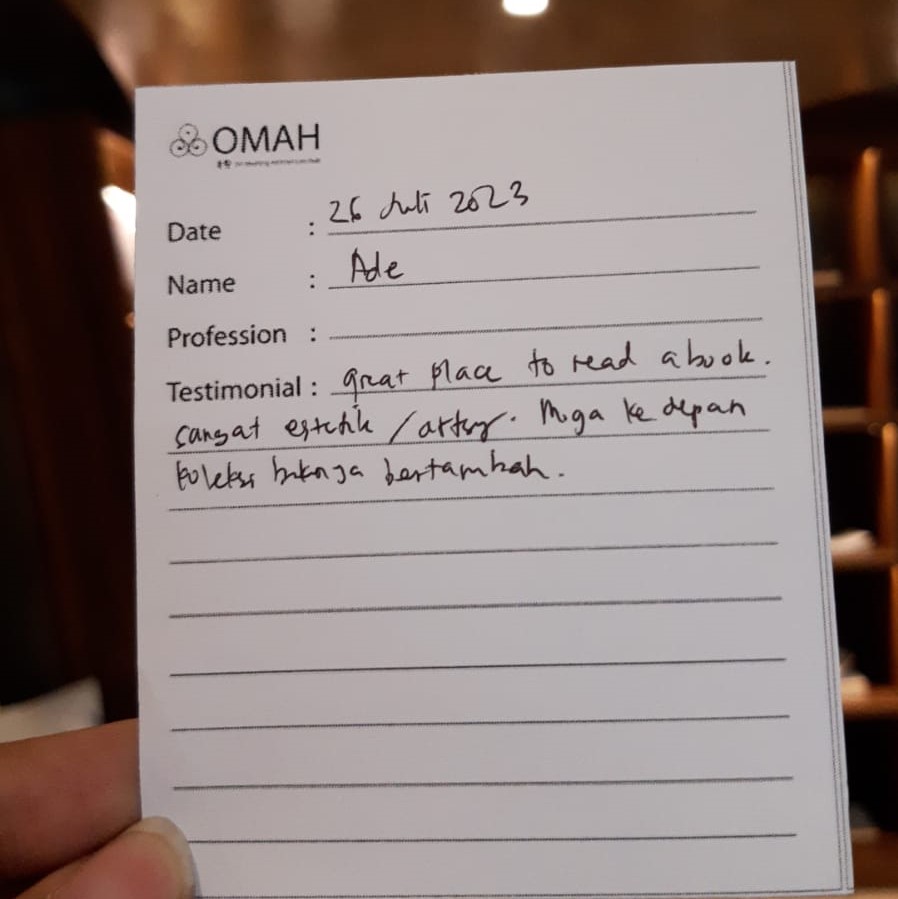 OMAH
Date : 26 Juli 2023
Name : Ade
Profession :
Testimonial : great place to read a book.
sangat estetik / artsy. Moga ke depan
koleksi bukunya bertambah.